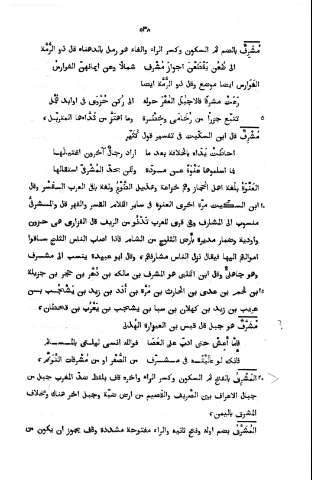 ٥٣٨
مُشْرِفٌ بالضم ثم السكون وكسر الراء والفاء عو رمل بالدهناء قال ذو الرُّمَّة
الى ظُعُن يَقْطَعْنَ أجوازَ مُشْرِف شمالاً وعن ايمانهنّ الفوارسُ
الفوارس ايضا موضع وقال ذو الرمة
رَعَتْ مشرفًا فالاجبُلَ العُفْرَ حولَه الى رُكْن حُزْوَى فى اوابد
تتبّع جزرًا من رُخَامَى وخِطْرة وما اهتزّ من ثُدّاءها المتربّل
مُشْرِفٌ قال ابن السكيت فى تفسير قول كُثَيّر
احاطتْ يداه بالخلافة بعد ما اراد رجالٌ آخرون اغتيالها
فما اسلموها عَنْوَةً عن مودّة ولكن بحدّ المشرفىّ استقالها
العَنْوَة بلغة اهل الحجاز وهم خزاعة وهذيل الطوع وبلغة باقى العرب القسر وقال
ابن السكيت مرّة اخرى العنوة فى ساير الكلام القسر والقهر قال والمشرفىّ
منسوب الى المشارف وهى قرى للعرب تَدْنُو من الريف قال الفزارى هى حزون
واودية وضمار مديرة بأرض الثلوج من الشام فاذا اصاب الناس الثلج ساقوا
اموالهم اليها فيقال نزل الناس مشارفهم وقال ابو عبيدة ينسب الى مشرف
وهو جاهلىّ وقال ابن الكلبى هو المشرف بن مالك بن دُعْر بن حجر بن جزيلة
بن لخم بن عدى بن الحارث بن مُرّة بن أُدَد بن زيد بن يَشْجُب بن
عريب بن زيد بن كهلان بن سبا بن يشجب بن يَعْرُب بن قحطان
مُشَرَّف هو جبل قال قيس بن العيزارة الهذلى
فإنّا أُنْعِشْ حتى ادبّ على العصا فوالله انسى ليلتى بالمسالم
فانك لو عاليته فى مشرّف من الصُّفْر او من مُشْرِفات التوائم
المَشْرِقُ بالفتح ثم السكون وكسر الراء واخره قاف بلفظ ضدّ المغرب جبل من
جبال الاعراف بين الصريف والقصيم من ارض ضبّة وجبل اخر هناك ومخلاف
المشرق باليمن
المُشَرَّقُ بضم اوله وفتح ثانيه والراء مفتوحة مشددة وقاف يجوز ان يكون من